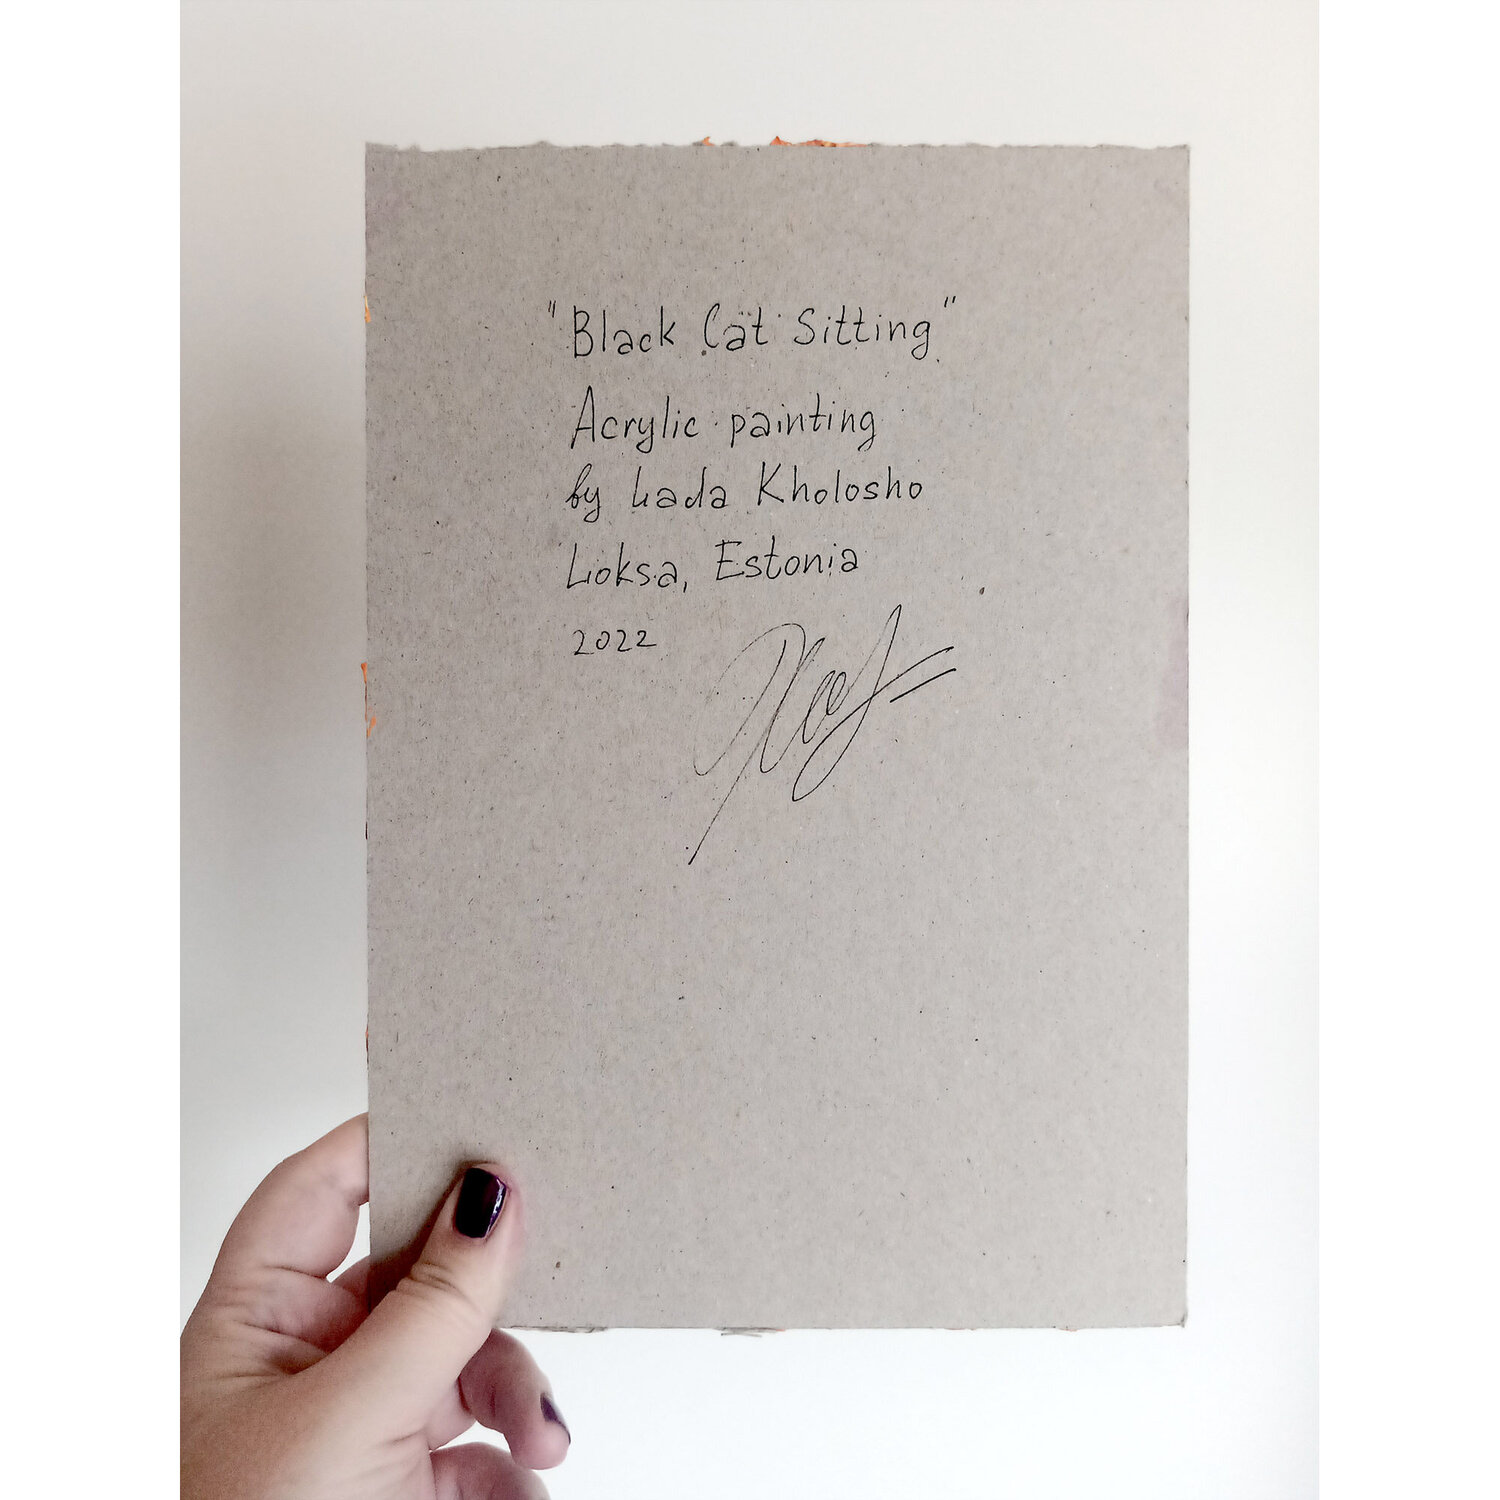 "Black Cat Sitting"
Acrylic painting
by Lada Kholosho
Loksa, Estonia
2022